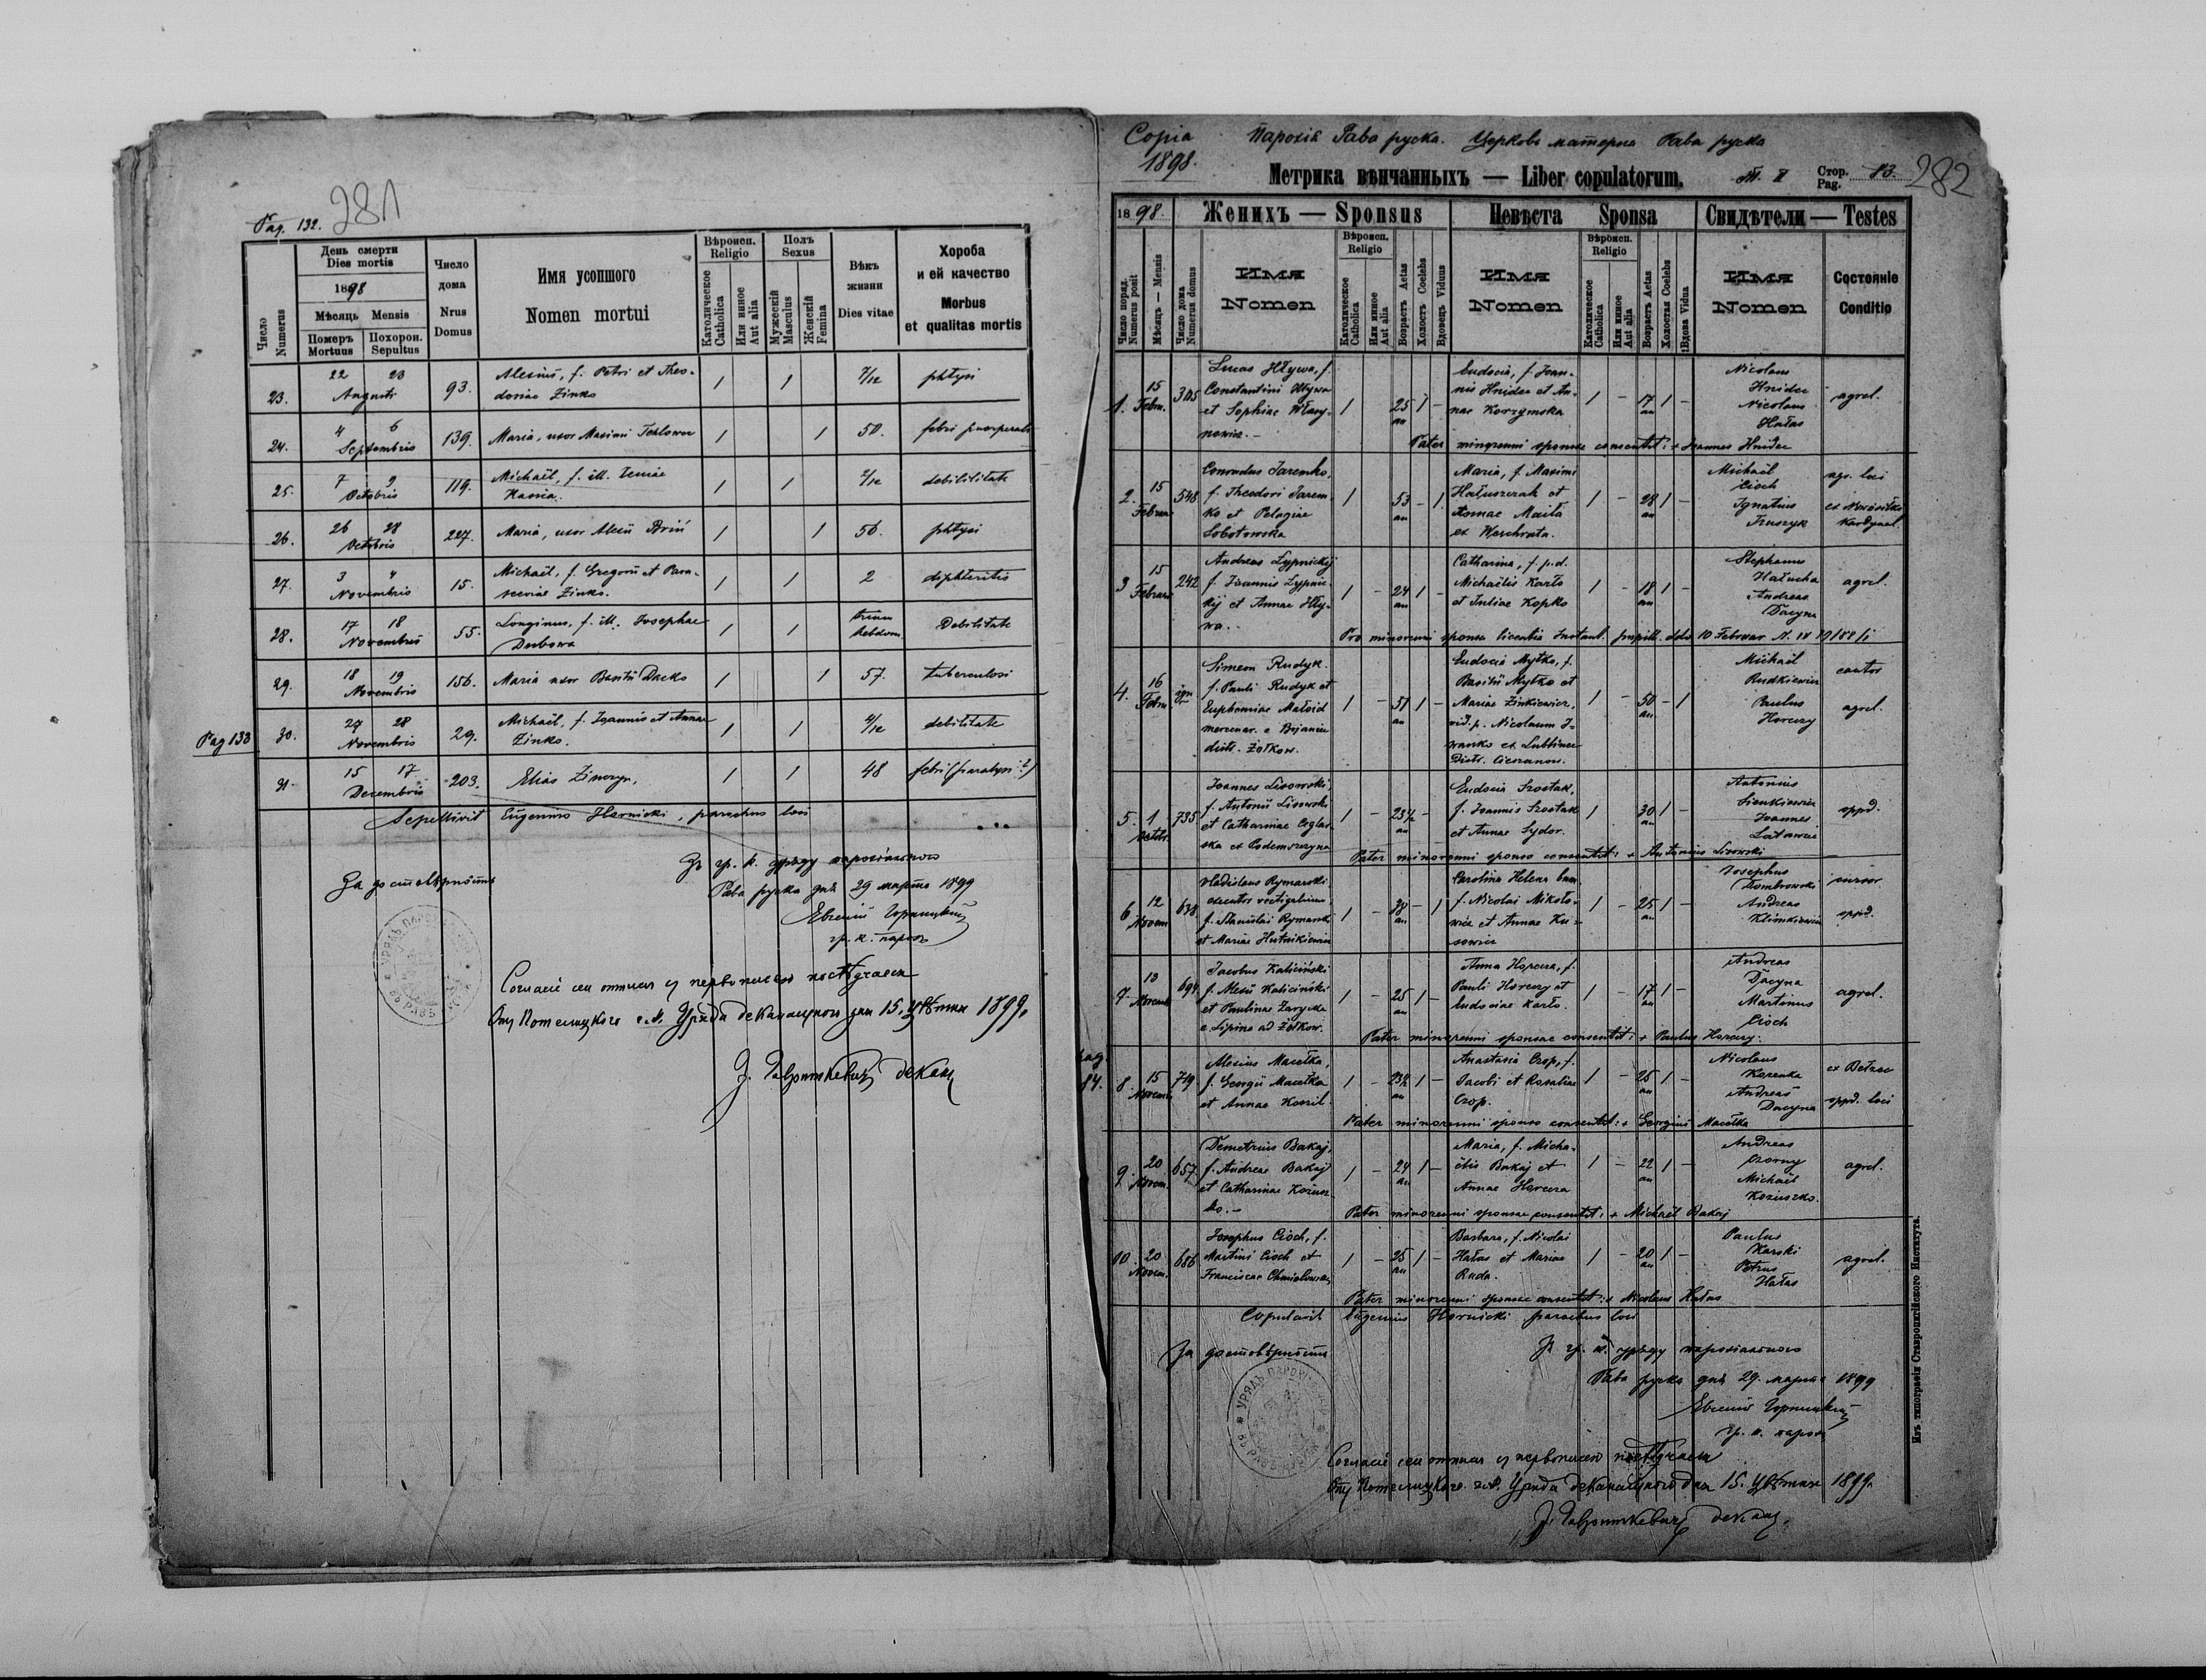 Pag. 132.
281
Число
Numerus
День смерти
Dies mortis
1898
Мѣсяць Mensis
Померъ
Mortuus
Похорон.
Sepultus
Число
дома
Nrus
Domus
Имя усопшого
Nomen mortui
Вѣроисп.
Religio
Католическое
Catholica
Или инное
Aut alia
Полъ
Sexus
Мужескій
Masculus
Женскій
Femina
Вѣкъ
жизни
Dies vitae
Хороба
и ей качество
Morbus
et qualitas mortis
23. 22 23 Augusti 93. Alexius, f. Petri et Theo-
dosiae Zinko 1 1 7/12 phtysi
24. 4 6 Septembris 139. Maria, uxor Maximi 1 1 50. febri puerperali
25. 7 9 Octobris 119. Michaël, f. ill.
1 1 2/12 debilitate
26. 26 28 Octobris 227. Maria, uxor Alexii 1 1 56. phtysi
27. 3 4 Novembris 15. Michaël, f. Gregorii et Para-
sceviae Zinko. 1 1 2 diphteritis
28. 17 18 Novembris 55. Longinus, f. ill. Josephae
Dubowa 1 1 trium
hebdom. Debilitate
29. 18 19 Novembris 156. Maria uxor Basilii Dacko 1 1 57. tuberculosi
Pag 133 30. 27 28 Novembris 29. Michaël, f. Joannis et Annae
Zinko. 1 1 debilitate
31. 15 17 Decembris 203. Elias 1 1 48 febri
Sepelivit Eugenius Hornicki, parochus loci
За достовѣрность
Зъ гр. к. уряду парохіального
Рава руска дня 29 марта 1899
Евгеній Горницкій
гр. к. парох
Согласіе сеи отписи съ первописею посвѣдчаеся
Отъ Потелицкого г.к. Уряда деканацкого дня 15. Цвѣтня 1899.
декан
Copia
1898.
Парохія Рава руска. Церковь матерна Рава руска
Метрика вѣнчанныхъ — Liber copulatorum.
Стор.
Pag. 83.
282
1898.
Женихъ — Sponsus
Невѣста Sponsa
Свидѣтели — Testes
Число поряд.
Numerus posit
Мѣсяць — Mensis
Число дома
Numerus domus
Имя
Nomen
Вѣроисп.
Religio
Католическое
Catholica
Или инное
Aut alia
Возрастъ Aetas
Холостъ Coelebs
Вдовецъ Viduus
Имя
Nomen
Вѣроисп.
Religio
Католическое
Catholica
Или инное
Aut alia
Возрастъ Aetas
Холостая Coelebs
Вдова Vidua
Имя
Nomen
Состояніе
Conditio
1. 15 Febru. 305 Lucas Hływa, f.
Constantini Hływa
et Sophiae
1 25 an 1 – Eudocia, f. Joan-
nis Hnidec et An-
nae Korzymska 1 – 17 an 1 – Nicolaus
Hnidec
Nicolaus
Hałas agrcl.
Pater minorenni sponsae consentit: + Joannes Hnidec
2. 15 Februar 548 Conradus Jaremko,
f. Theodori Jarem-
ko et Pelagiae
1 53 an – 1 Maria, f. Maximi
Hałuszczak et
Annae
ex 1 – 28 an 1 – Michaël
Cioch
Ignatius
agr. loci
3 15 Februar 242 Andreas Lypnickij
f. Joannis Lypnic-
kij et Annae Hły-
wa. 1 – 24 an 1 – Catharina, f. p.d.
Michaëlis Karło
et Juliae Kopko 1 – 18 an 1 – Stephanus
Hałucha
Andreas
Dacyna agrcl.
Pro minorenni sponsa licentia
10 Februar
4. 16 Febru. Simeon Rudyk.
f. Pauli Rudyk et
Euphemiae Małoid
mercenar. e
distr. Żołkow. 1 – 51 an 1 – Eudocia Mytko, f.
Basilii Mytko et
Mariae Zinkiewicz,
vid. p. Nicolaum I-
wanko ex Lubliniec
Distr. Cieszanow. 1 – 50 an – 1 Michaël
Rudkiewicz
Paulus
Horczy cantor
agrcl.
5. 1 Octobr. 735 Joannes Lisowski,
f. Antonii Lisowski
et Catharinae Ceglar-
ska ex 1 – 23½ an – Eudocia Szostak,
f. Joannis Szostak
et Annae Sydor. 1 30 an 1 – Antonius
Sienkiewicz
Joannes
oppd.
Pater minorenni sponso consentit: + Antonius Lisowski
6 12 Novem 638. Vladislaus Rymarski,
executor vectigalium,
f. Stanislai Rymarski
et Mariae 1 – 38 an – 1 Carolina Helena
f. Nicolai Mikoło-
wicz et Annae Ku-
sowicz 1 – 25 an 1 – Josephus
Dombrowski
Andreas
Klimkiewicz cursor
oppd.
7 13 Novemb 694. Jacobus Kaliciński
f. Alexii Kaliciński
et Paulinae
e Lipina ad Żółkow. 1 – 25 an 1 – Anna Horcza, f.
Pauli Horczy et
Eudociae Karło. 1 – 17 an 1 – Andreas
Dacyna
Martinus
Cioch agrcl.
Pater minorenni sponsae consentit: + Paulus Horczy.
Pag. 84. 8. 15 Novemb 749 Alexius Macełka,
f. Georgii Macełka
et Annae 1 – 23½ an 1 – Anastasia Czop, f.
Jacobi et Rosaliae
Czop. 1 – 25 an 1 – Nicolaus
Andreas
Dacyna ex Bełzec
oppd. loci
Pater minorenni sponso consentit: + Georgius Macełka
9. 20 Novem. 657 Demetrius Bakaj,
f. Andreae Bakaj
et Catharinae
1 – 24 an 1 – Maria, f. Micha-
ëlis Bakaj et
Annae Horcza 1 – 22 an 1 – Andreas
Czorny
Michaël
agrcl.
Pater minorenni sponsae consentit: + Michaël Bakaj
10. 20 Novem. 686 Josephus Cioch, f.
Martini Cioch et
Franciscae 1 – 25 an 1 – Barbara, f. Nicolai
Hałas et Mariae
Ruda. 1 – 20 an 1 – Paulus
Karski
Petrus
Hałas agrcl.
Pater minorenni sponsae consentit: + Nicolaus Hałas
Copulavit Eugenius Hornicki parochus loci
За достовѣрность
Зъ гр. к. уряду парохіального
Рава руска дня 29. марта 1899
Евгеній Горницкій
гр. к. парох
Согласіе сеи отписи съ первописею посвѣдчаеся
Отъ Потелицкого г.к. Уряда деканацкого дня 15. Цвѣтня 1899.
декан.
Изъ типографіи Ставропигійского Института.